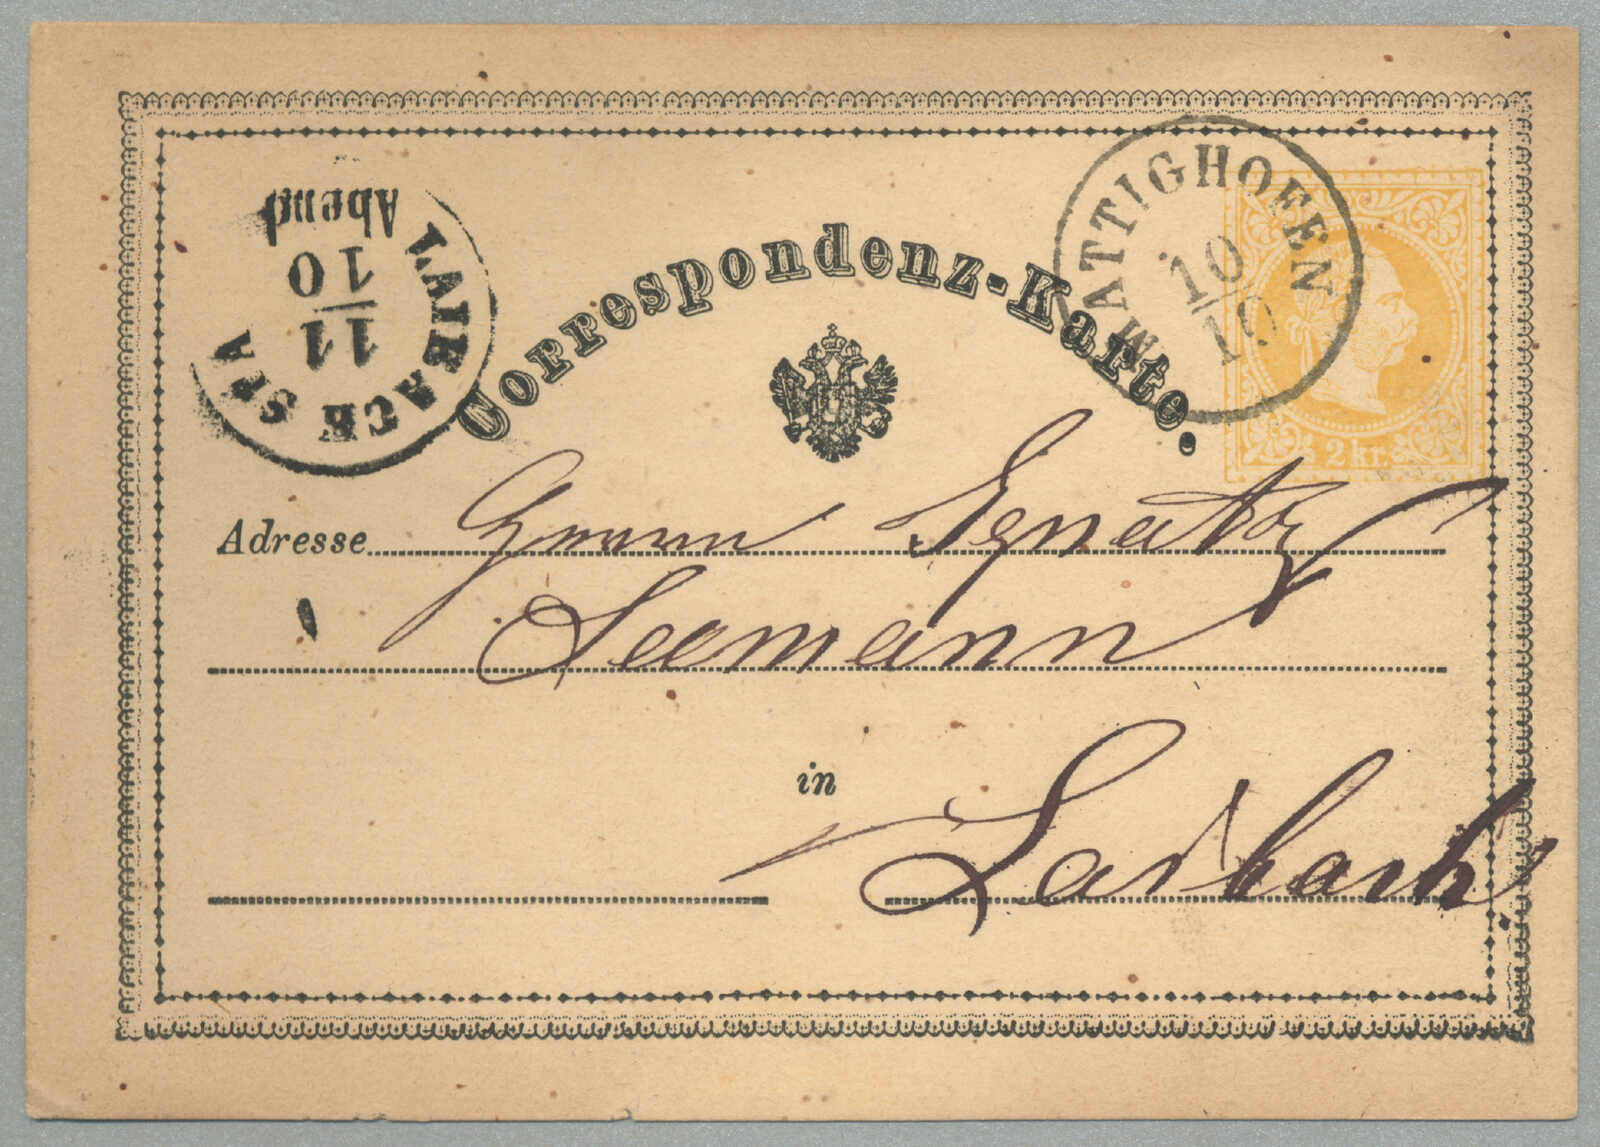 Correspondenz-Karte.
MATTIGHOFEN
10
10
2 kr.
LAIBACH STA
11
10
Abend
Adresse Herrn Ignatz
Seemann
in
Laibach